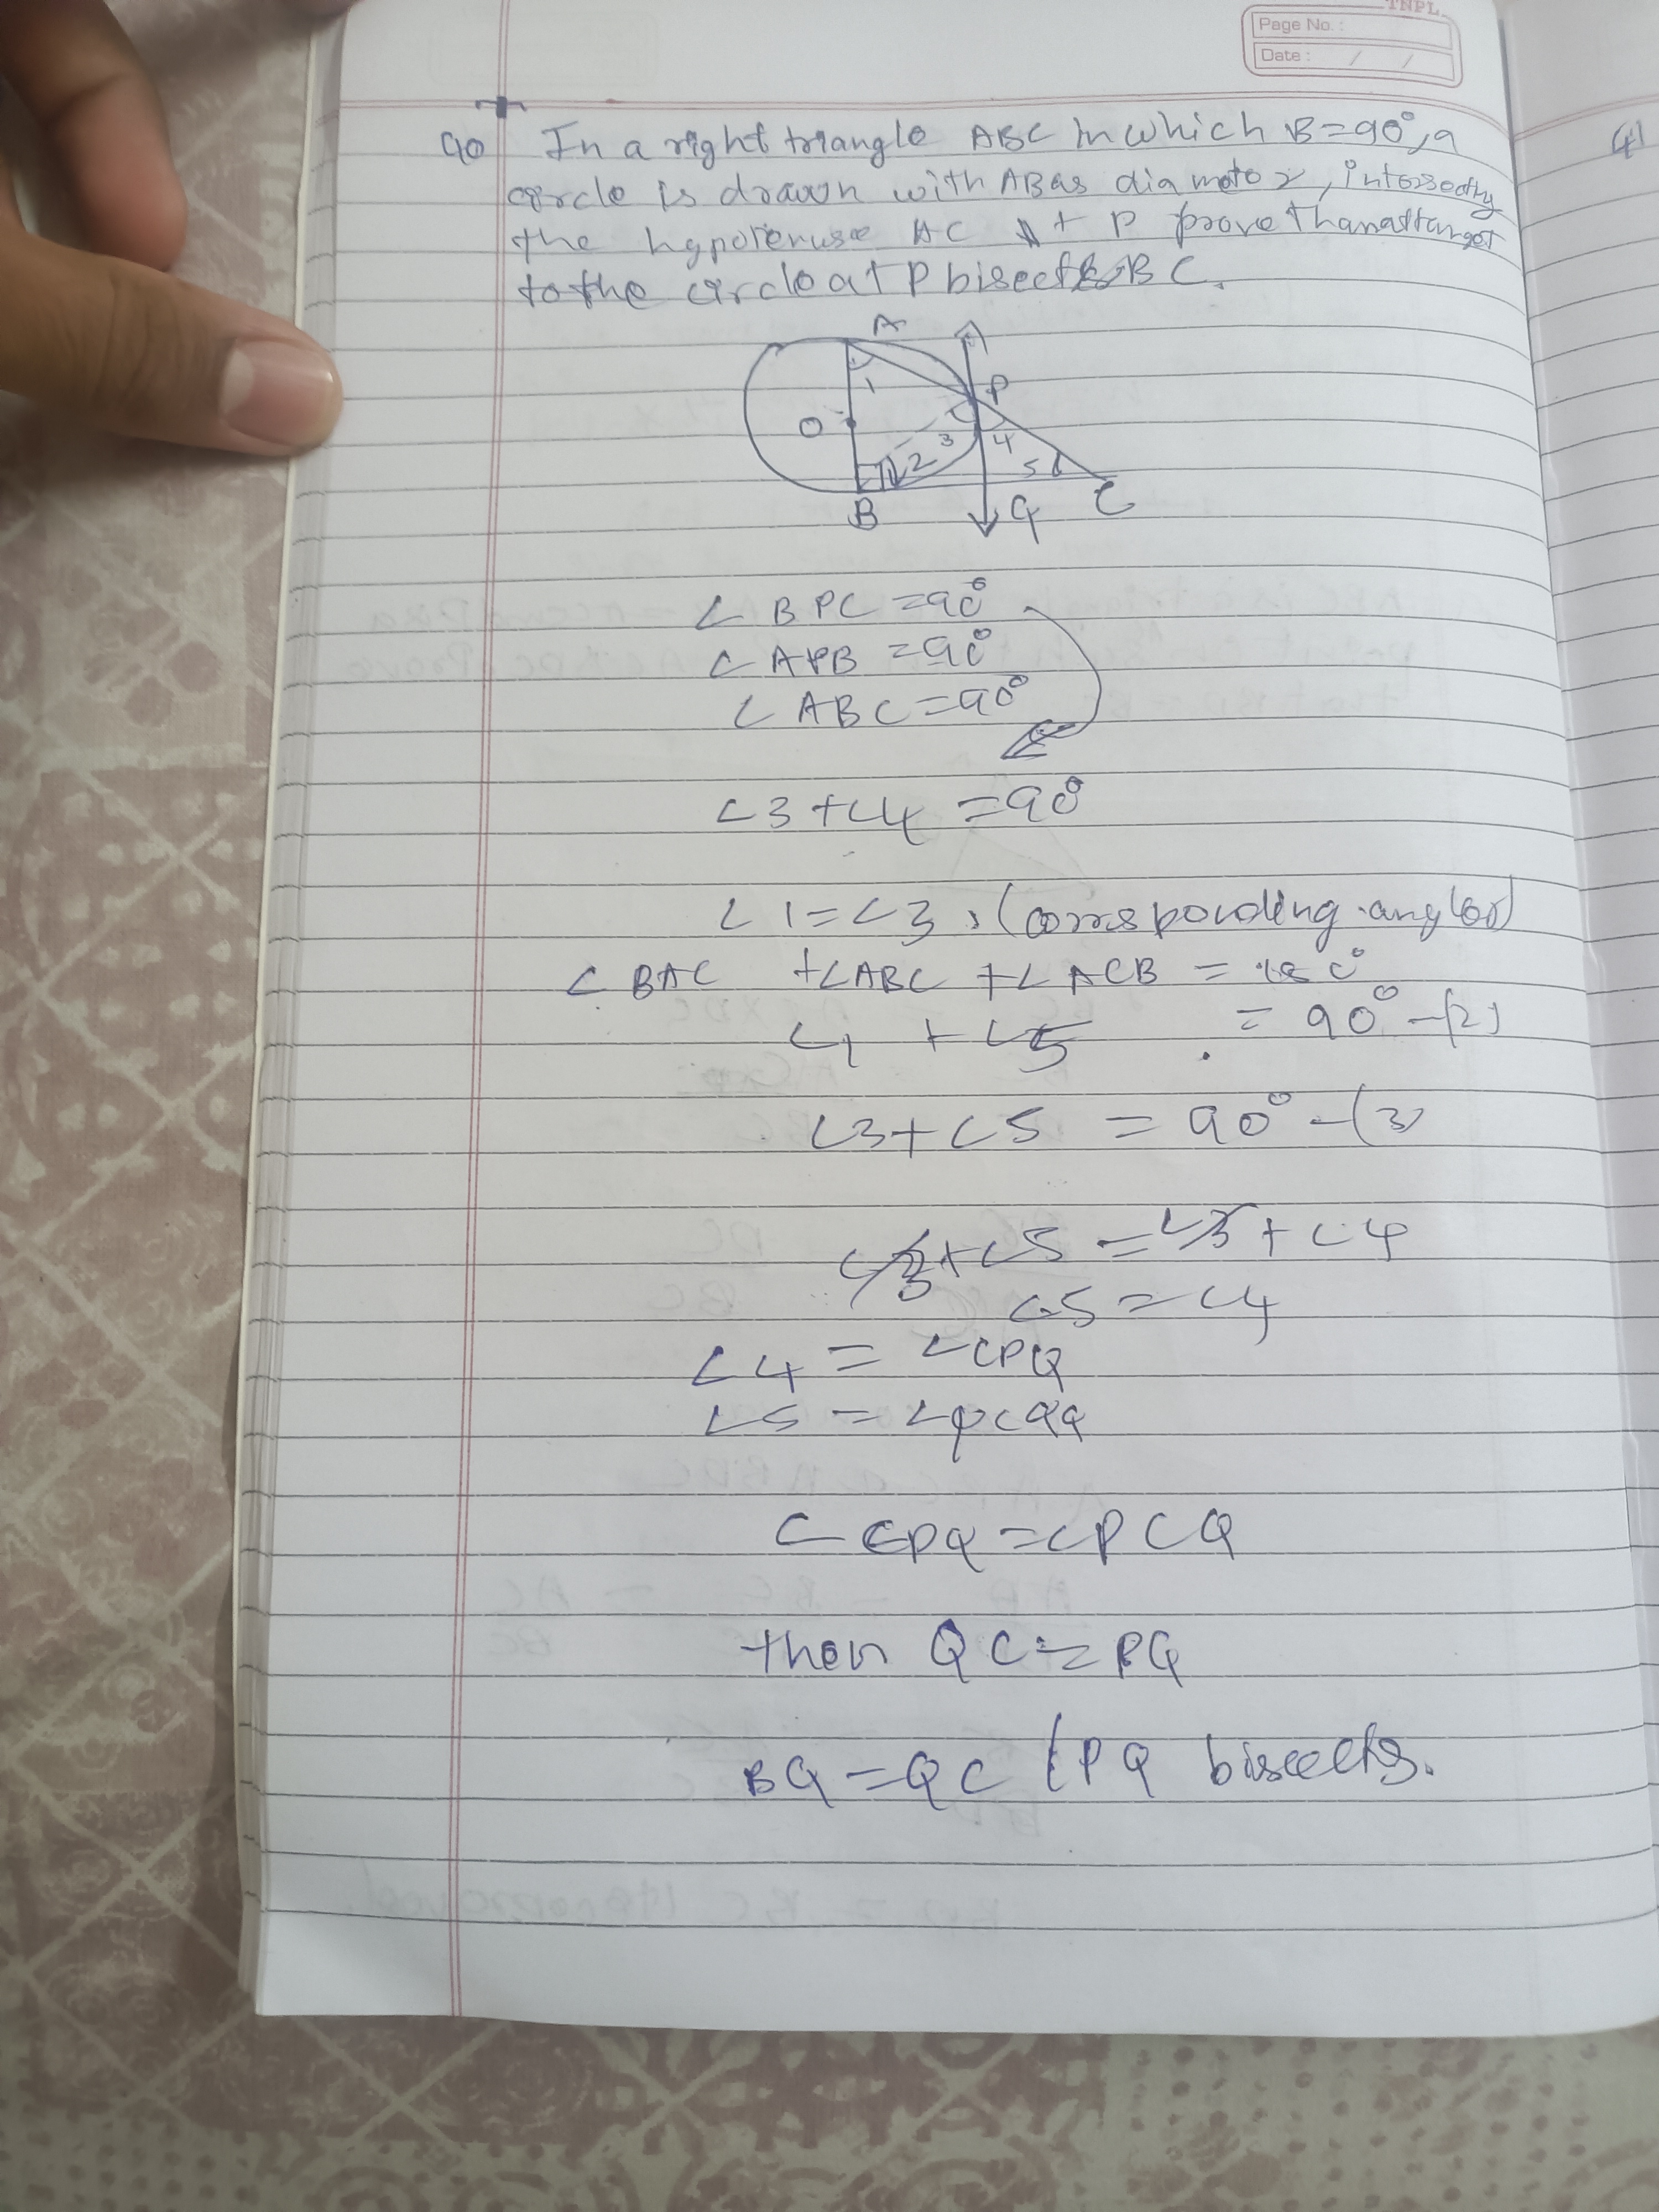 TNPL
Page No. :
Date : / /
40 In a right triangle ABC in which B=90°, a
circle is drawn with AB as diamotor, intersecting
the hypotenuse AC At P prove
to the circle at P bisects BC.
A
1
P
O
3 4
2
5
B
Q
C
∠BPC =90°
∠APB =90°
∠ABC=90°
∠3+∠4 =90°
∠1=∠3, (corresponding angles)
∠BAC +∠ABC +∠ACB = 180°
∠1 + ∠5 = 90° -(2)
∠3+∠5 = 90° -(3)
∠3+∠5 =∠3+∠4
∠5=∠4
∠4 = ∠CPQ
∠5 = ∠PCQ
∠CPQ=∠PCQ
then QC=PQ
BQ=QC (PQ bisects.
41